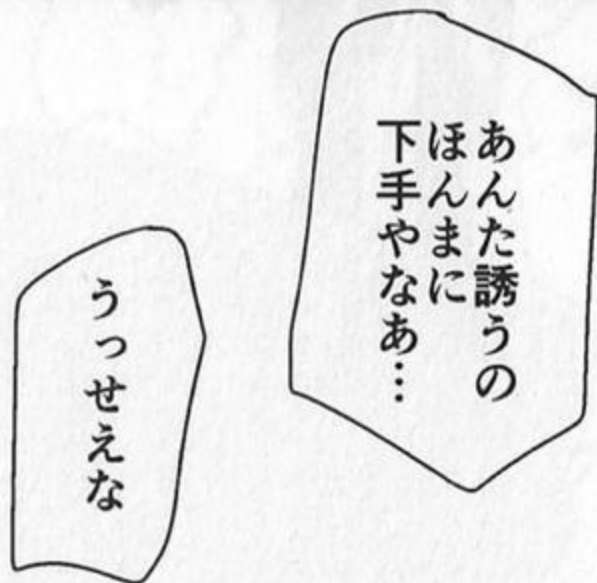 あんた誘うの
ほんまに
下手やなあ…
うっせえな